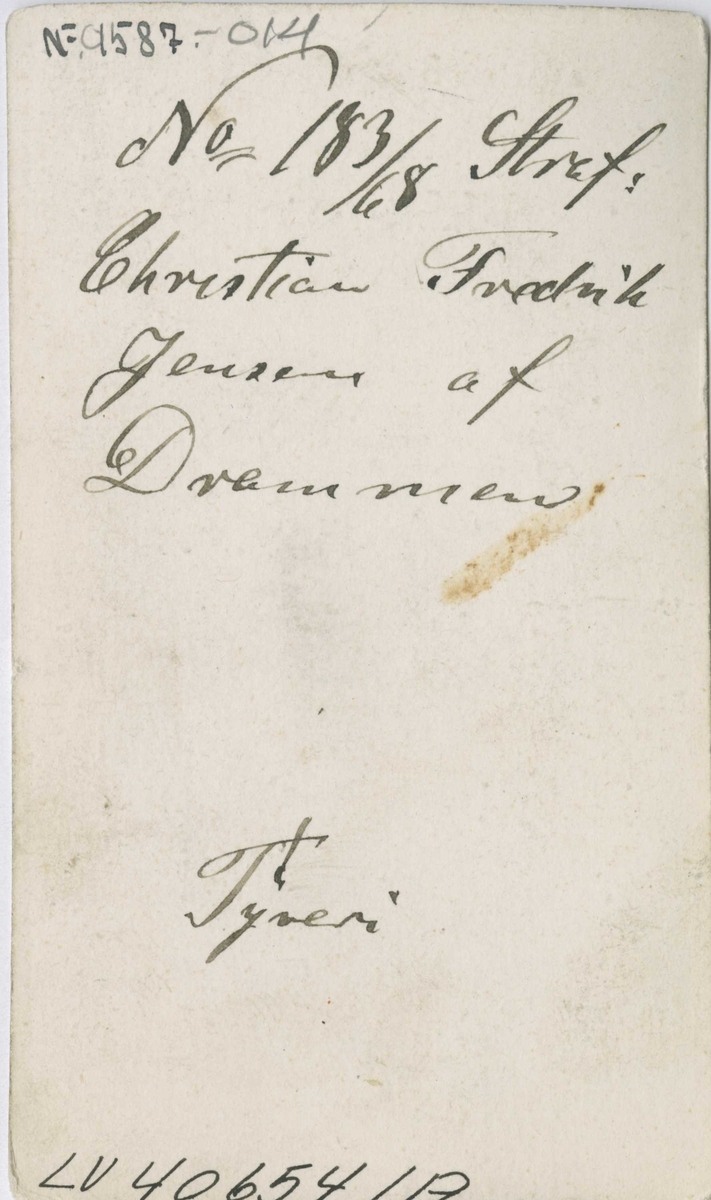 No 9587-014
No 183/68 Straf:
Christian Fredrik
Jensen af
Drammen
Tyveri
LV 40654/A